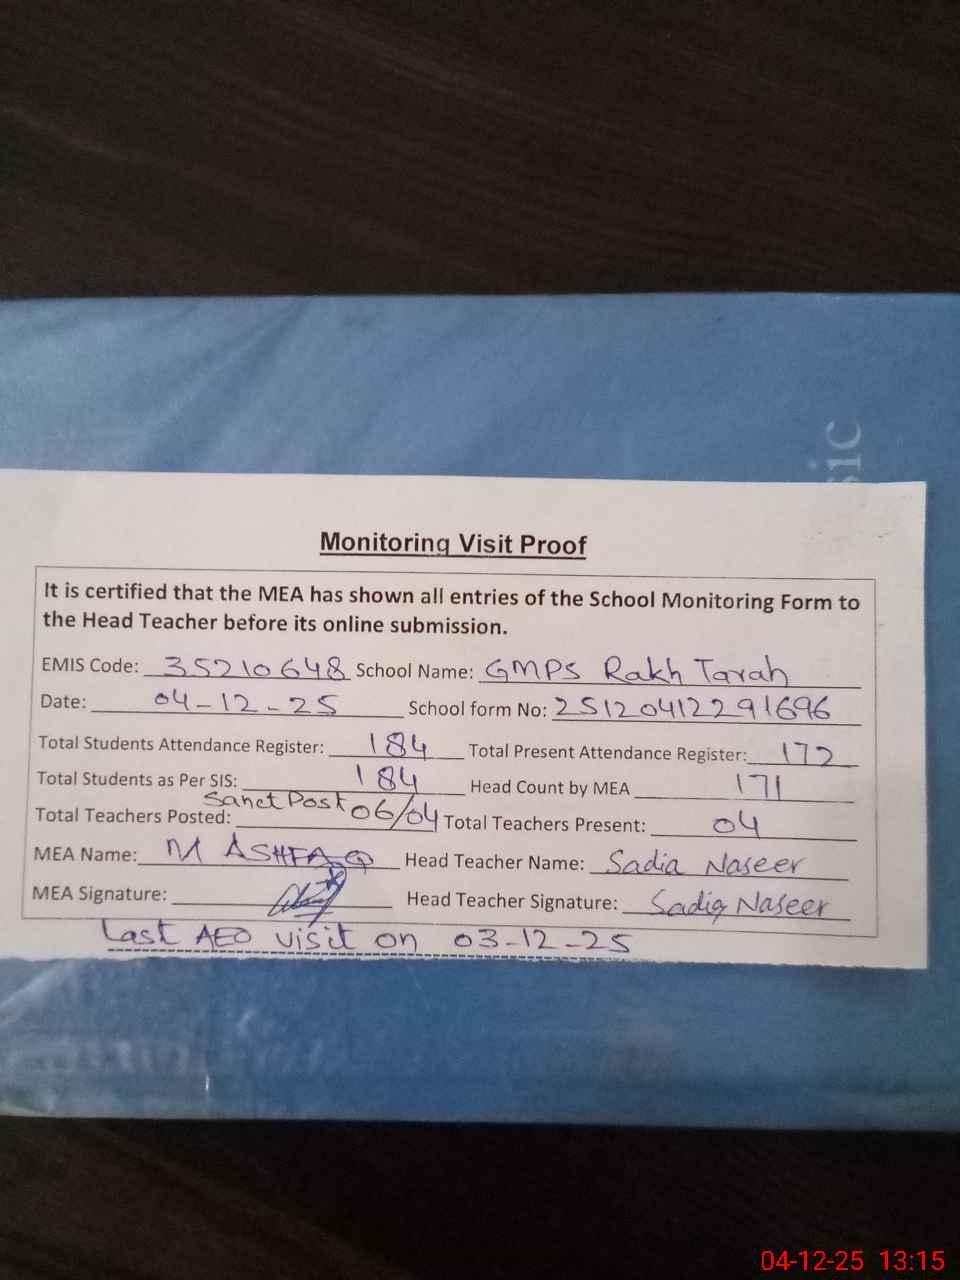 sic
Monitoring Visit Proof
It is certified that the MEA has shown all entries of the School Monitoring Form to
the Head Teacher before its online submission.
EMIS Code: 35210648 School Name: GMPS Rakh Tarah
Date: 04-12-25 School form No: 25120412291696
Total Students Attendance Register: 184 Total Present Attendance Register: 172
Total Students as Per SIS: 184 Head Count by MEA 171
Total Teachers Posted: Sanct Post 06/04 Total Teachers Present: 04
MEA Name: M ASHFAQ Head Teacher Name: Sadia Naseer
MEA Signature: Head Teacher Signature: Sadia Naseer
Last AEO visit on 03-12-25
04-12-25 13:15